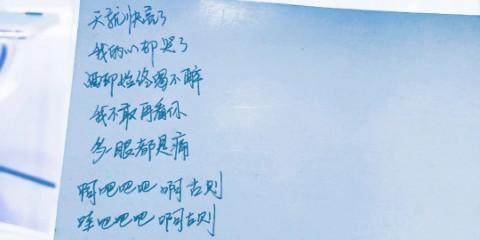 天就快亮了
我的心都哭了
酒却始终喝不醉
我不敢再看你
多一眼都是痛
啊吧吧吧 啊古则
哇吧吧吧 啊古则